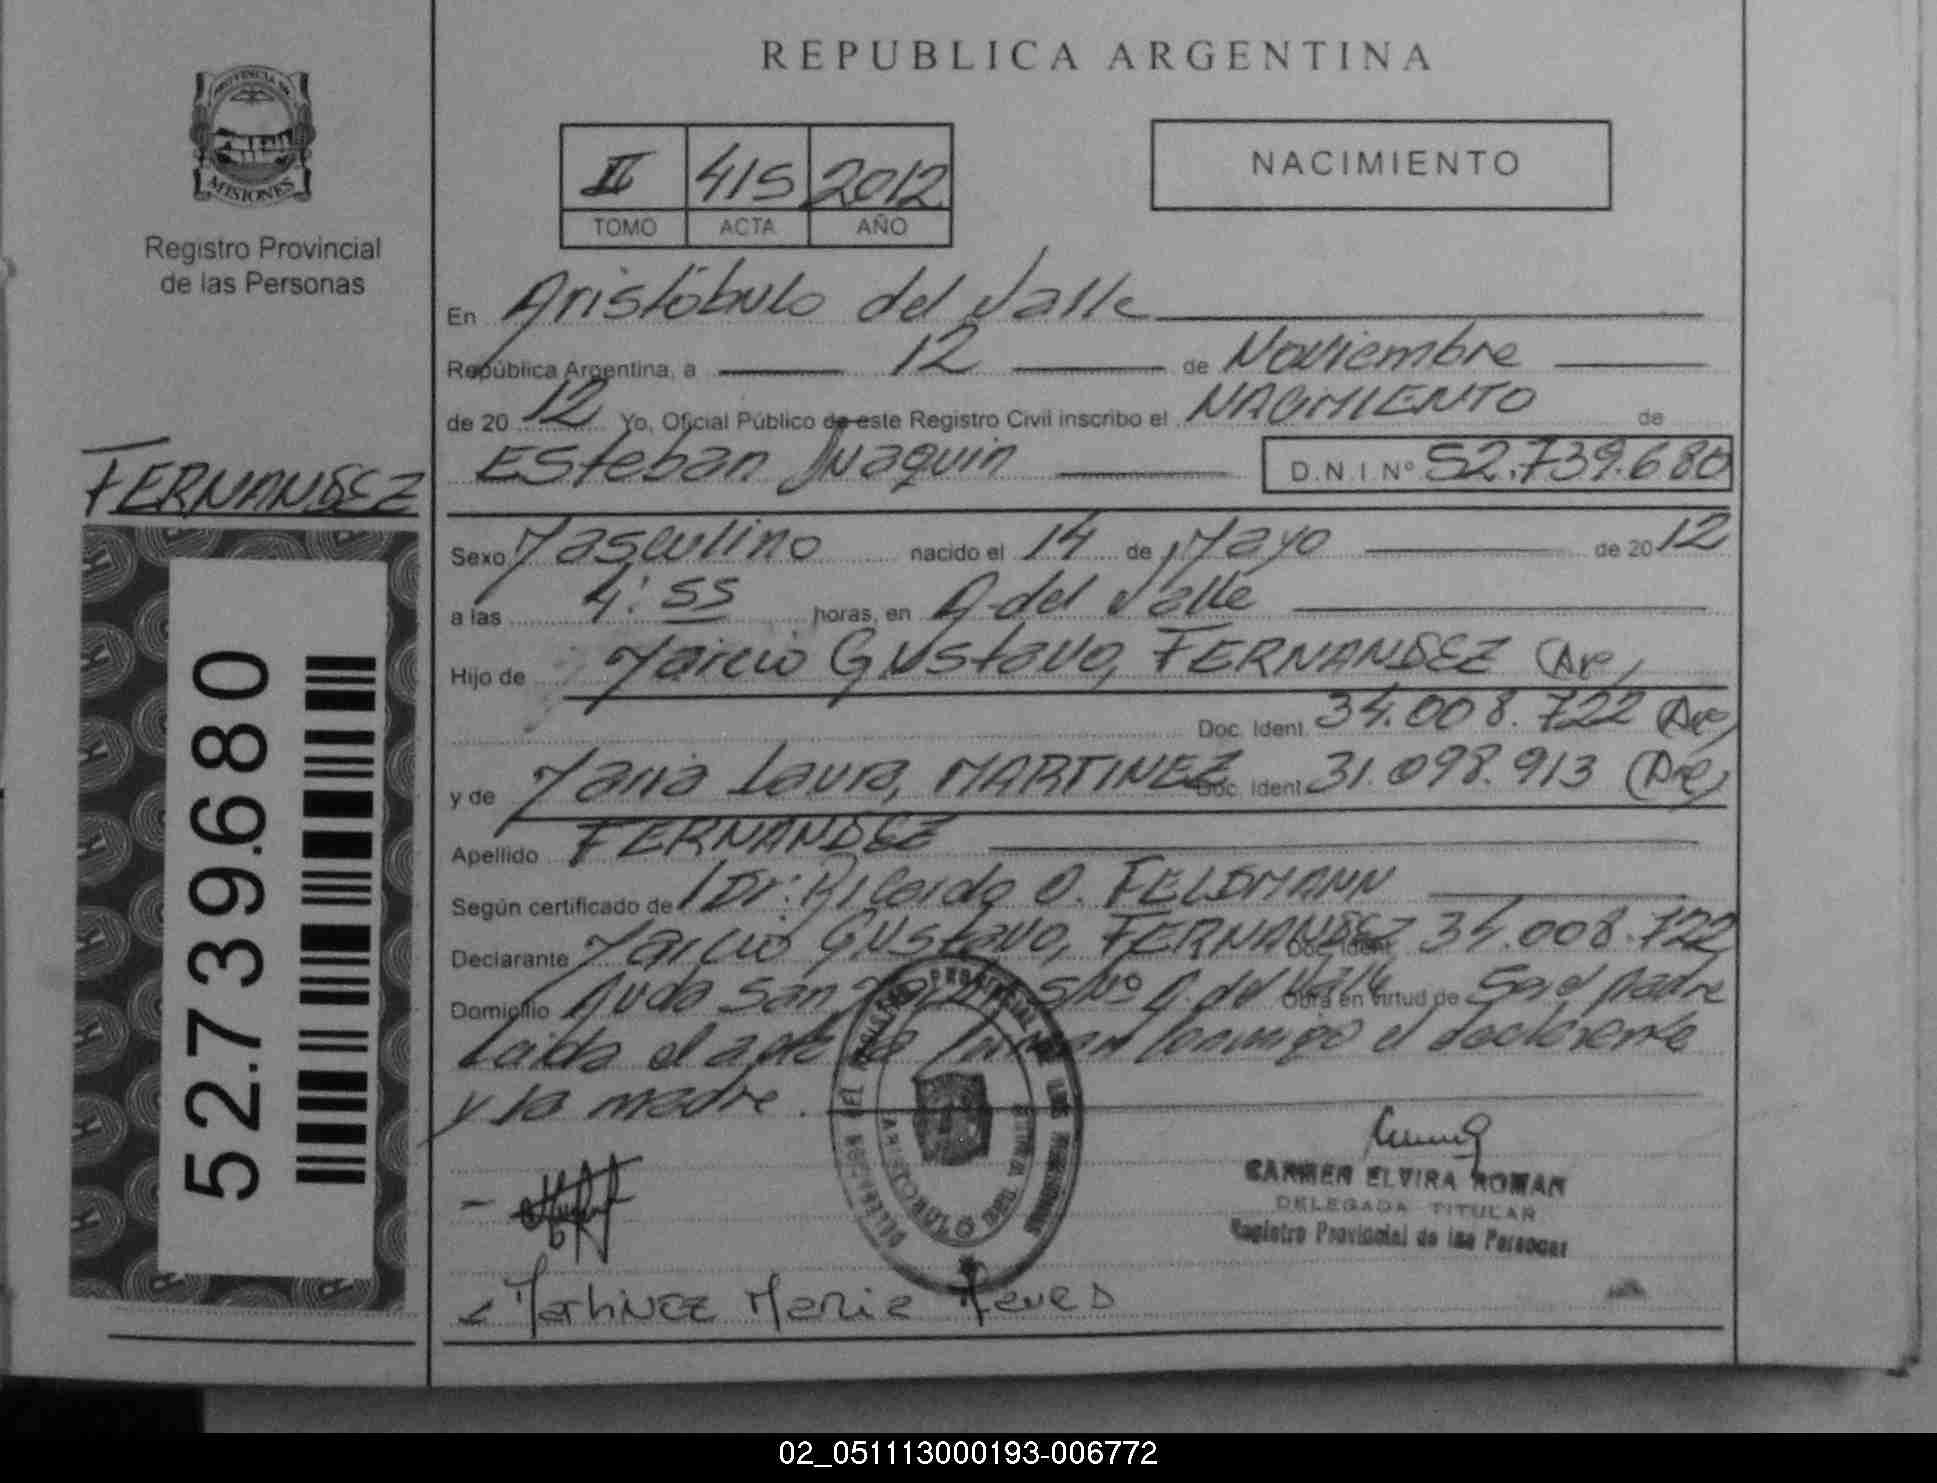 REPUBLICA ARGENTINA
PROVINCIA DE
MISIONES
Registro Provincial
de las Personas
II 415 2012
TOMO ACTA AÑO
NACIMIENTO
En Aristóbulo del Valle
República Argentina, a 12 de Noviembre
de 20 12 Yo, Oficial Público de este Registro Civil inscribo el NACIMIENTO de
Esteban Juaquin D.N.I Nº 52.739.680
FERNANDEZ
52.739.680
Sexo Masculino nacido el 14 de Mayo de 20 12
a las 4:55 horas, en A. del Valle
Hijo de Marcio Gustavo, FERNANDEZ (Arg)
Doc. Ident. 34.008.722 (Arg)
y de Maria Laura, MARTINEZ Doc. Ident. 31.098.913 (Arg)
Apellido FERNANDEZ
Según certificado de Dr: Ricardo O. FELDMANN
Declarante Marcio Gustavo, FERNANDEZ Doc. Ident. 34.008.722
Domicilio Avda San S/Nº A. del Valle Obra en virtud de Ser el padre
Leida el acta la firman conmigo el declarante
y la madre.
CARMEN ELVIRA ROMAN
DELEGADA TITULAR
Registro Provincial de las Personas
Martinez Maria
02_051113000193-006772